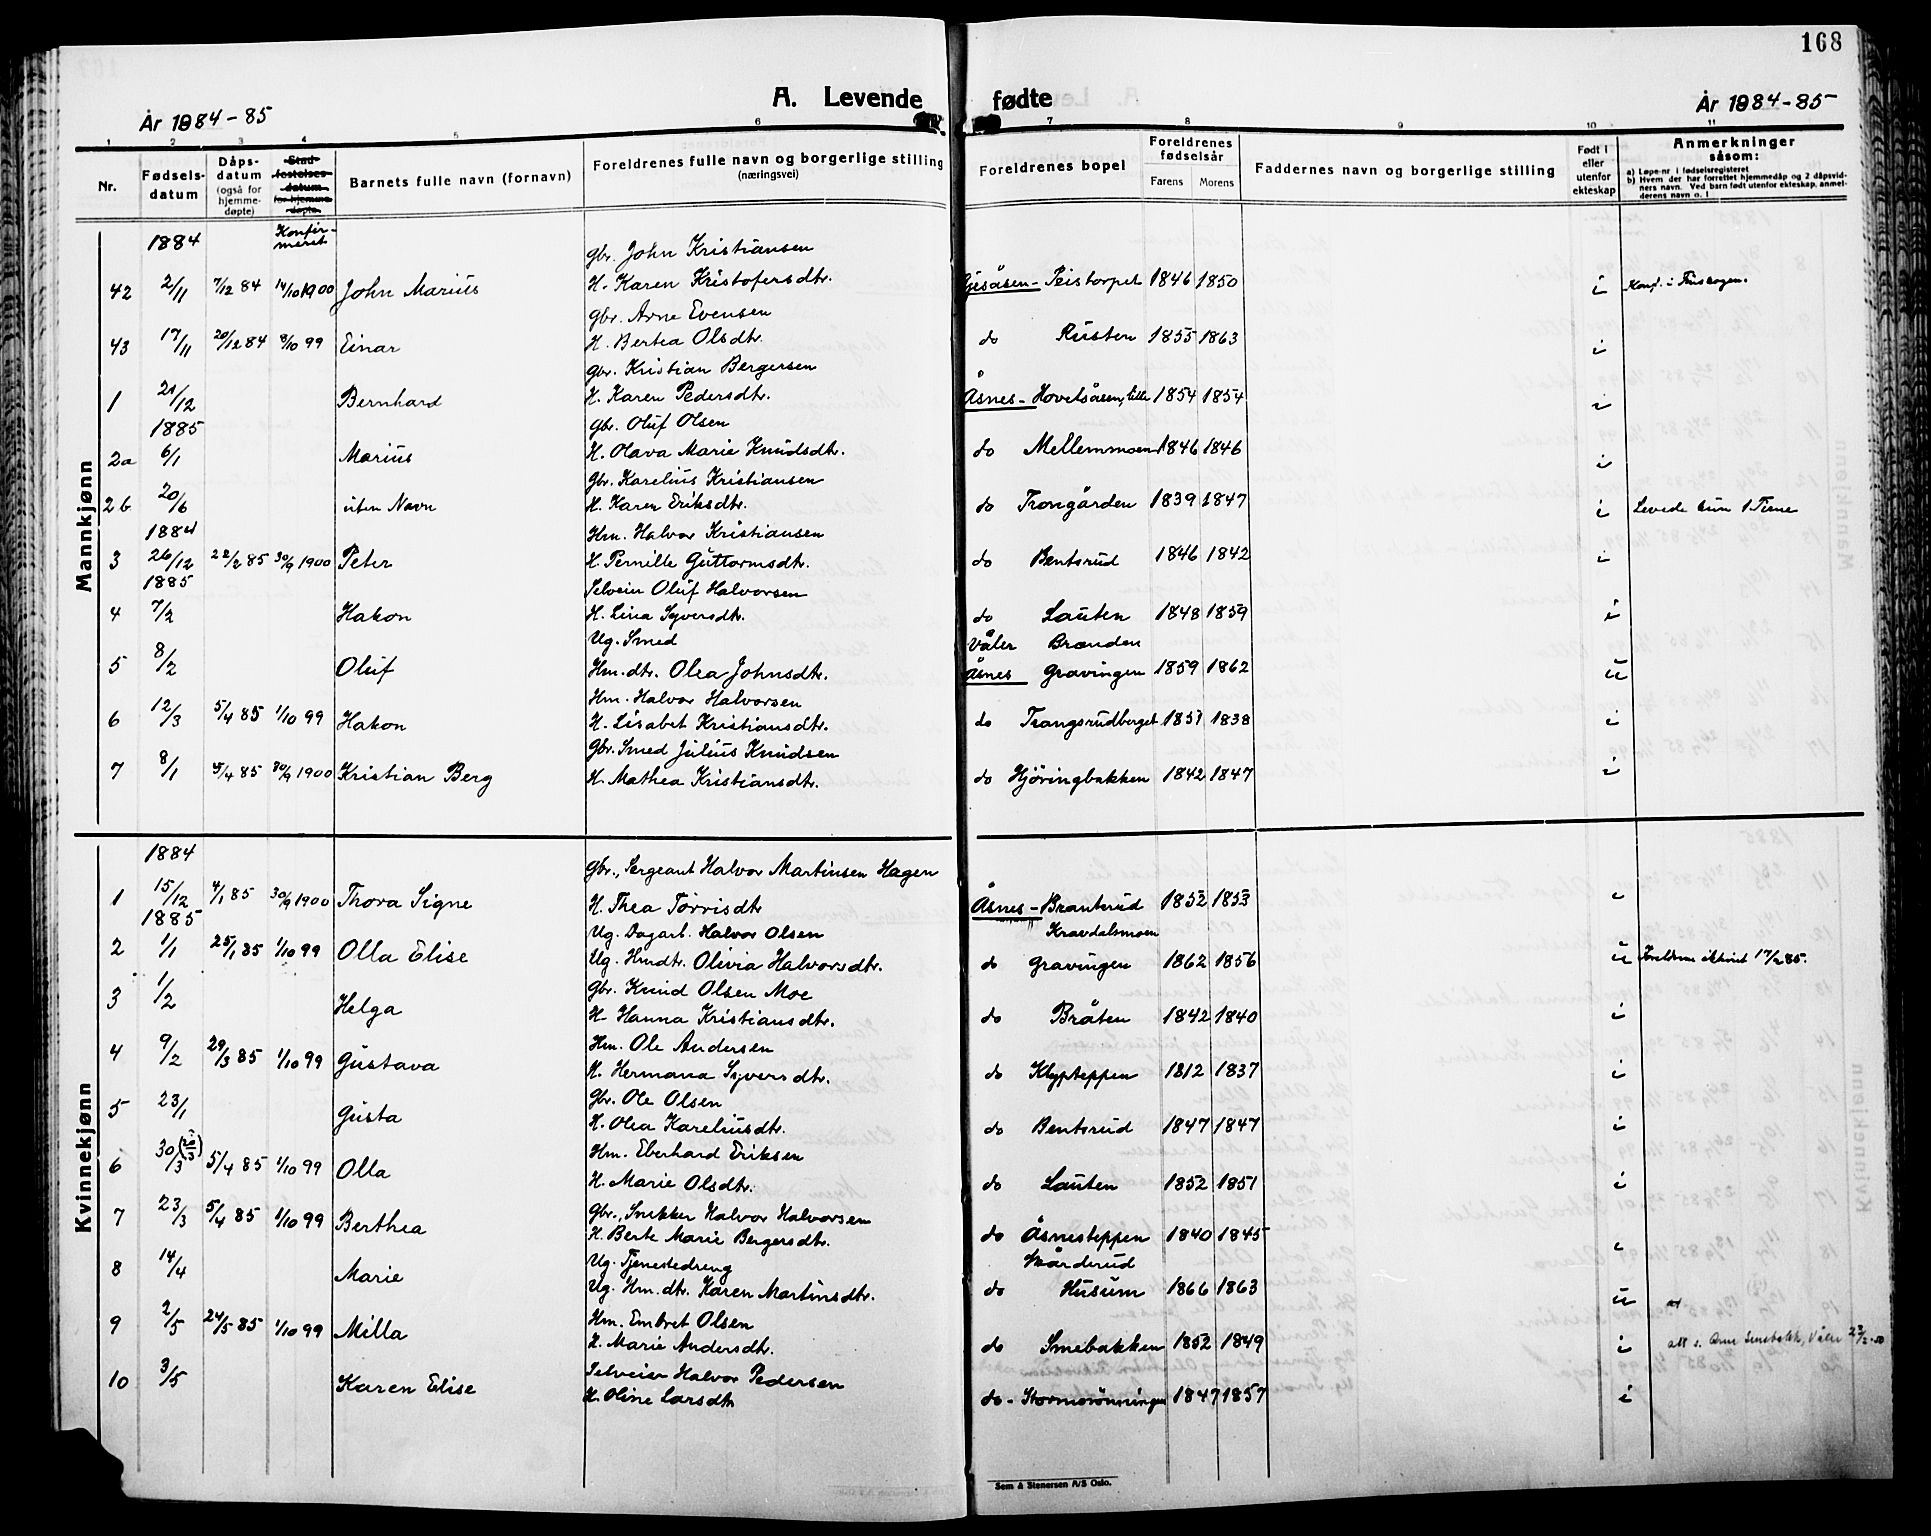 168
A. Levende fødte
År 1884-85
År 1884-85
1 2 3 4 5 6 7 8 9 10 11
Nr.
Fødsels-datum
Dåps-datum (også for hjemme-døpte)
Stad-festelses-datum for hjemme-døpte
Konfir-meret
Barnets fulle navn (fornavn)
Foreldrenes fulle navn og borgerlige stilling (næringsvei)
Foreldrenes bopel
Foreldrenes fødselsår
Farens Morens
Faddernes navn og borgerlige stilling
Født i eller utenfor ekteskap
Anmerkninger såsom:
a) Løpe-nr i fødselsregisteret
b) Hvem der har forrettet hjemmedåp og 2 dåpsvid-ners navn. Ved barn født utenfor ekteskap, anmel-derens navn o. l.
Mannkjønn
1884
gbr. John Kristiansen
42 2/11 7/12 84 14/10 1900 John Marius H. Karen Kristofersdtr. Gjesåsen - Peistorpet 1846 1850 i Konf. i Finskogen.
gbr. Arne Evensen
43 17/11 20/12 84 8/10 99 Einar H. Bertea Olsdtr. do Rusten 1855 1863 i
gbr. Kristian Bergersen
1 21/12 Bernhard H. Karen Pedersdtr. Åsnes - Hovelsåsen, lille 1854 1854 i
1885 gbr. Oluf Olsen
2a 6/1 Marius H. Olava Marie Knudsdtr. do Mellemmoen 1846 1846 i
gbr. Karelius Kristiansen
2b 20/6 uten Navn H. Karen Eriksdtr. do Trongården 1839 1847 i Levede kun 1 Time
1884 Hm. Halvor Kristiansen
3 26/12 22/2 85 30/9 1900 Peter H. Pernille Guttormsdtr. do Bentsrud 1846 1842 i
1885 Selveier Oluf Halvorsen
4 7/2 Hakon H. Lina Syversdtr. do Lauten 1848 1859 i
Ug. Smed Våler Branden
5 8/2 Oluf Hm.dtr. Olea Johnsdtr. Åsnes Gravingen 1859 1862 u
Hm. Halvor Halvorsen
6 12/3 5/4 85 1/10 99 Hakon H. Lisabet Kristiansdtr. do Trangsrudberget 1851 1838 i
Gbr. Smed Julius Knudsen
7 8/1 5/4 85 30/9 1900 Kristian Berg H. Mathea Kristiansdtr. do Hjøringbakken 1842 1847 i
Kvinnekjønn
1884
gbr., Sergeant Halvor Martinsen Hagen
1 15/12 4/1 85 30/9 1900 Thora Signe H. Thea Torrisdtr Åsnes - Branterud 1852 1853 i
1885 Ug. Dagarb. Halvor Olsen Kravdalsmoen
2 1/1 25/1 85 1/10 99 Olla Elise Ug. Hmdtr. Olivia Halvorsdtr. do Gravingen 1862 1856 u Foreldrene ekteviet 17/2 85.
gbr. Knud Olsen Moe
3 1/2 Helga H. Hanna Kristiansdtr. do Bråten 1842 1840 i
Hm. Ole Andersen
4 9/2 29/3 85 1/10 99 Gustava H. Hermana Syversdtr. do Klypteppen 1812 1837 i
Gbr. Ole Olsen
5 23/1 Gusta H. Olea Kareliusdtr. do Bentsrud 1847 1847 i
Hm. Eberhard Eriksen
6 30/3 5/4 85 1/10 99 Olla H. Marie Olsdtr. do Lauten 1852 1851 i
Gbr., Snekker Halvor Halvorsen
7 23/3 5/4 85 1/10 99 Berthea H. Berte Marie Bergersdtr. do Åsnesteppen 1840 1845 i
Ug. Tjenestedreng Skårderud
8 14/4 Marie Ug. Hm.dtr. Karen Martinsdtr. do Husum 1866 1863 u
Hm. Embret Olsen
9 2/5 24/5 85 1/10 99 Milla H. Marie Andersdtr. do Smebakken 1852 1849 i
Selveier Halvor Pedersen
10 3/5 Karen Elise H. Oline Larsdtr do - Stormorønningen 1847 1857 i
Sem & Stenersen A/S Oslo.